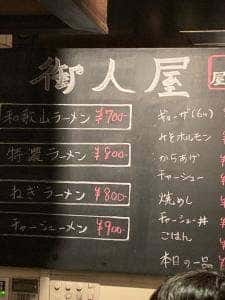 街人屋
和歌山ラーメン ¥700-
特濃ラーメン ¥800-
ねぎラーメン ¥800-
チャーシューメン ¥900-
ギョーザ(6ヶ)
みそホルモン
からあげ
チャーシュー
焼めし
チャーシュー丼
ごはん
本日の一品